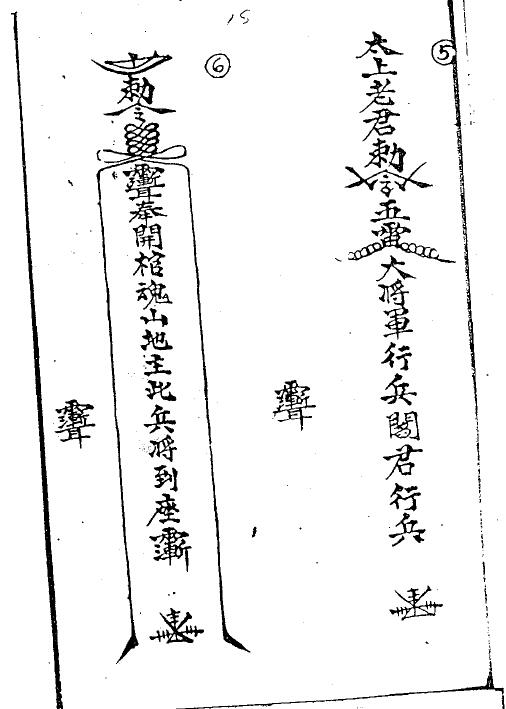 15
⑤
太上老君勅令五雷大將軍行兵閣君行兵
⑥
勅令
奉開棺魂山地主此兵將到座